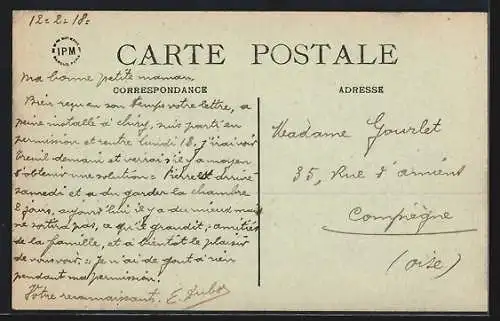 12-2-18:
IPM
CARTE POSTALE
Ma bonne petite maman,
CORRESPONDANCE
Bien reçu en son temps votre lettre, a
peine installé à suis parti en
permission et rentre lundi 18. J'irai voir
demain et verrai s'il y a moyen
d'obtenir une solution = Pierre est arrivé
samedi et a du garder la chambre
2 jours, aujourd'hui il y a du mieux mais
ne sortira pas, ce qu'il grandit; amitiés
de la famille, et à bientôt le plaisir
de vous voir. = Je n'ai de gout à rien
pendant ma permission.
Votre reconnaissant. E.
ADRESSE
Madame Gourlet
35, Rue d'amiens
Compiègne
(Oise)